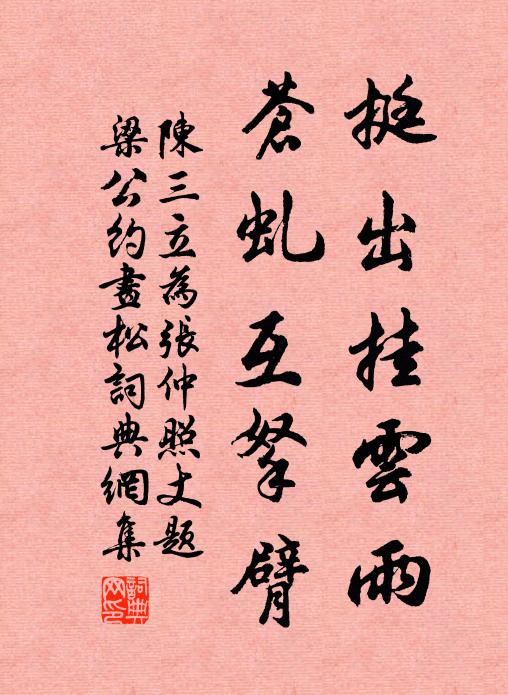 挺出挂雲雨
蒼虬互拏臂
陳三立為張仲照丈题
梁公約畫松詞典網集
詞典網印